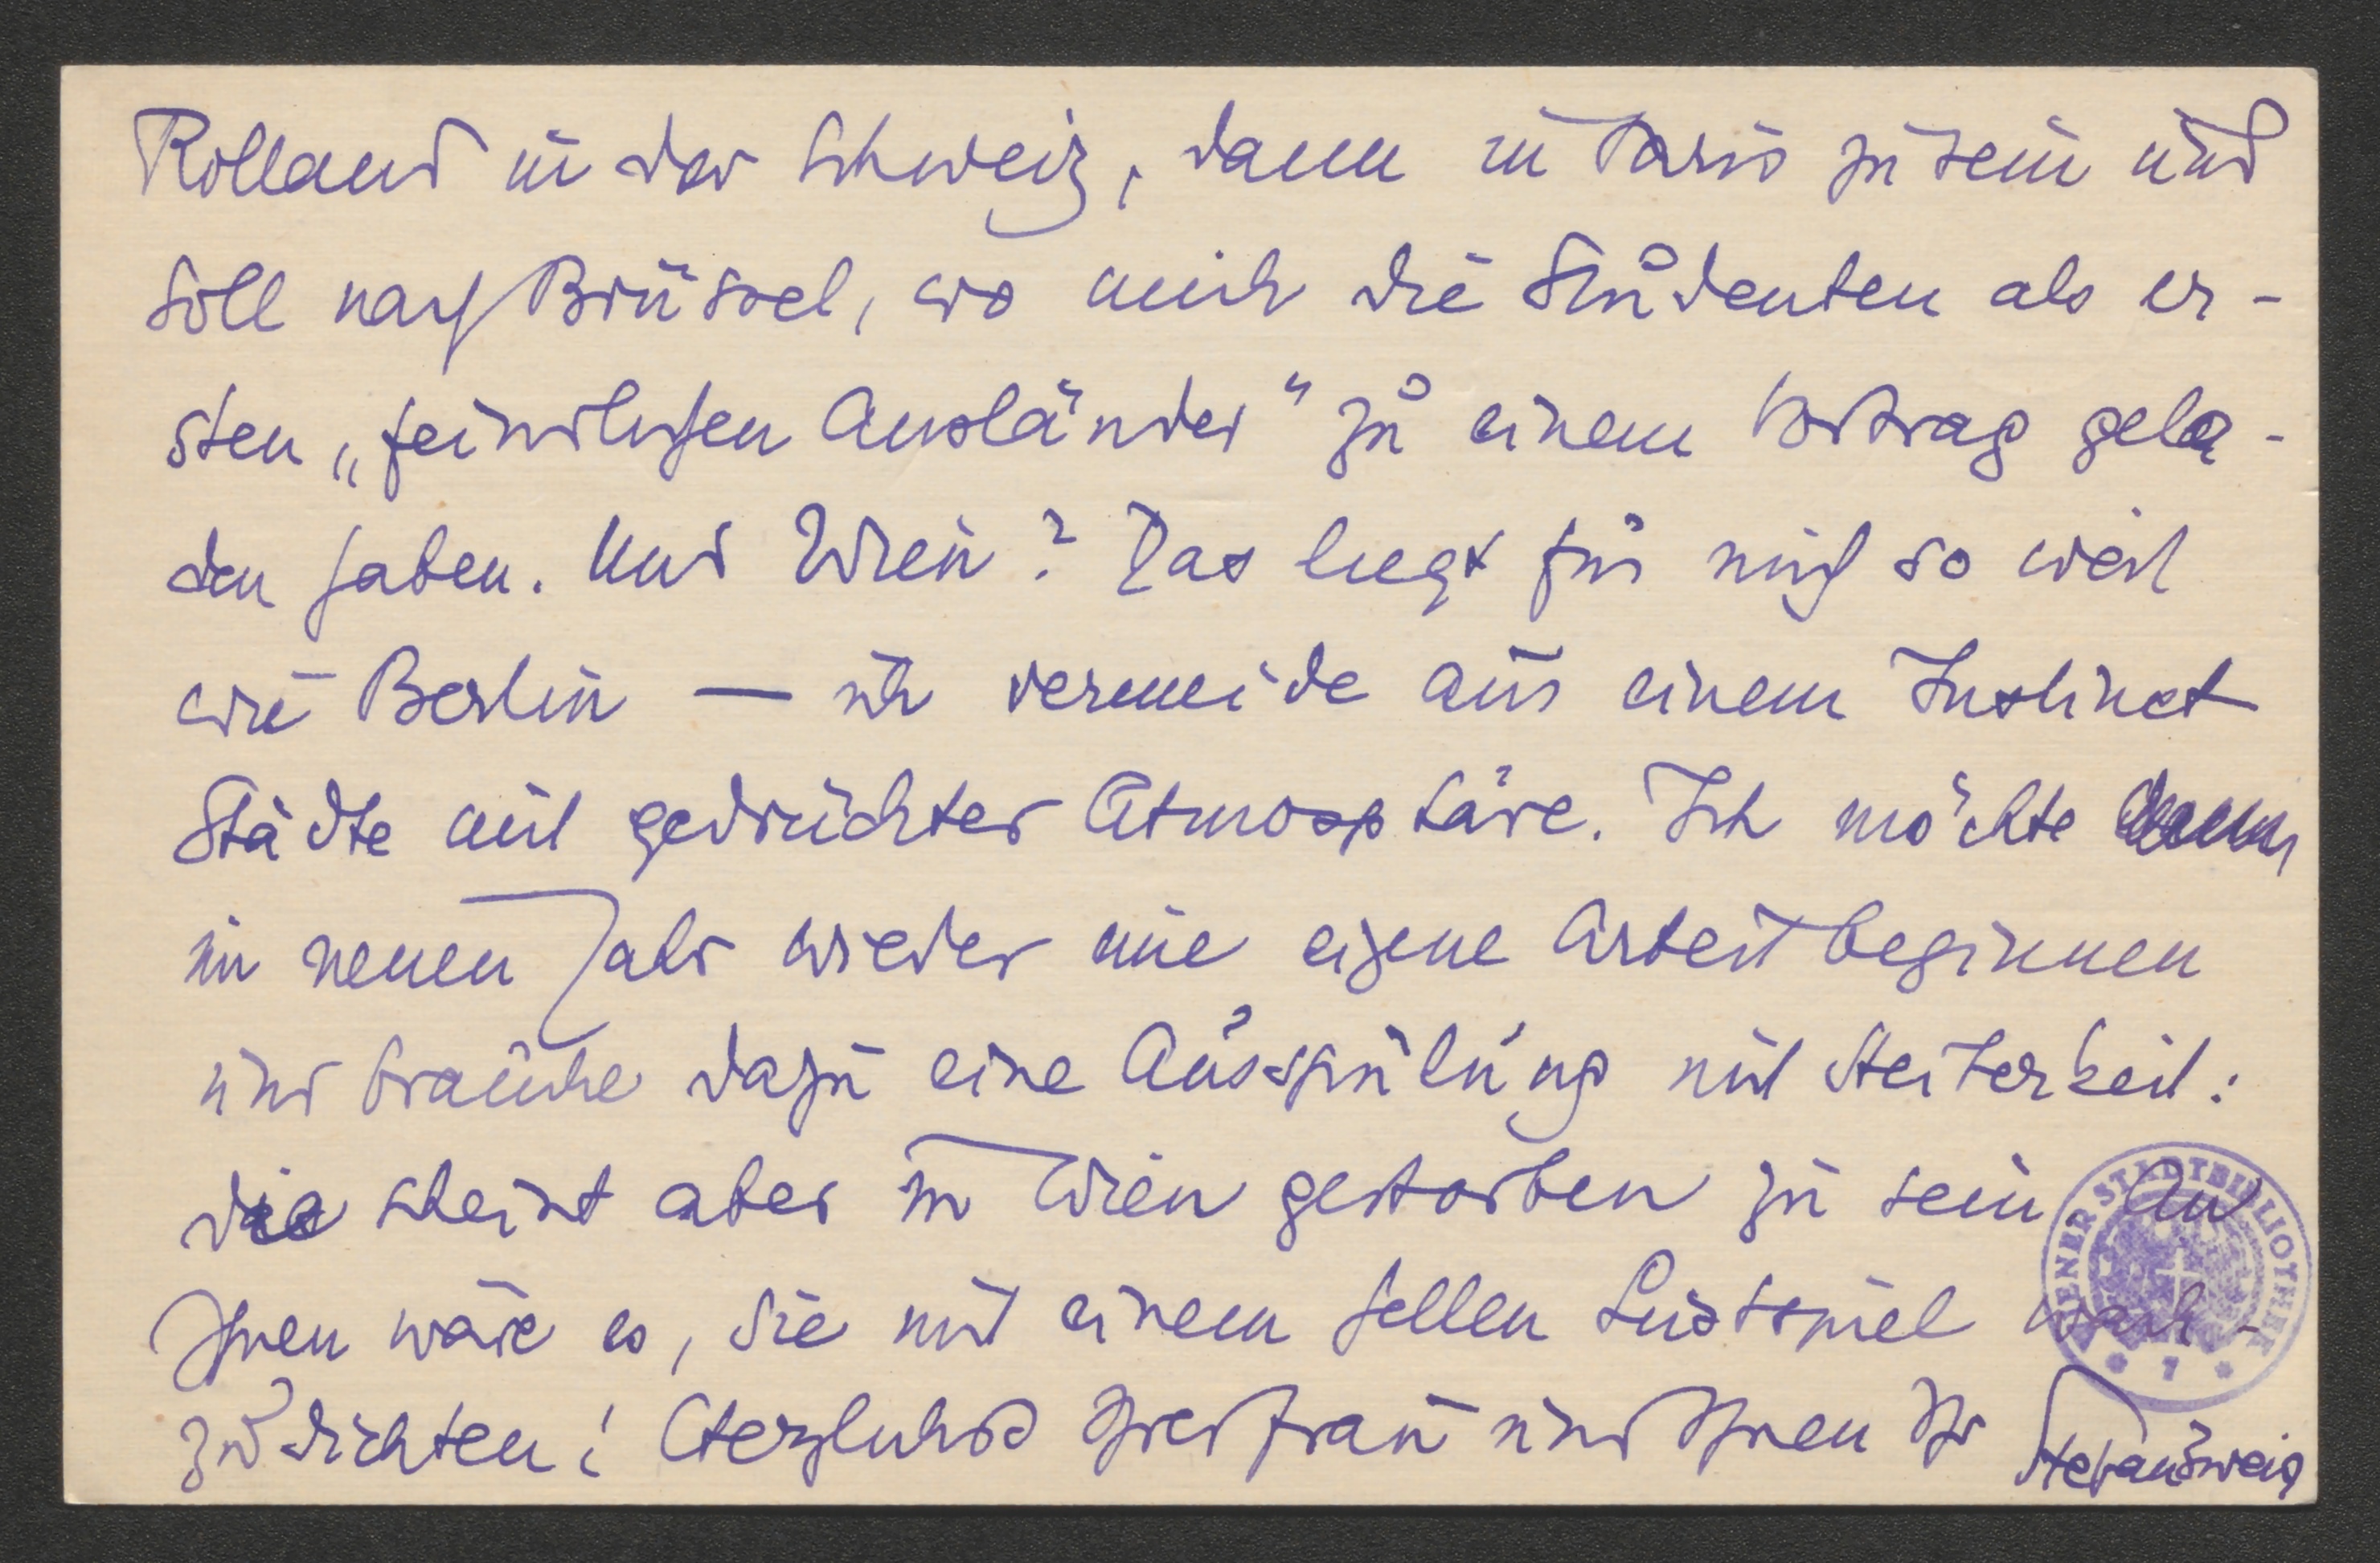 Rolland in der Schweiz, dann in Paris zu sein und
soll nach Brüssel, wo mich die Studenten als er-
sten „feindlichen Ausländer" zu einem Vortrag gela-
den haben. Und Wien? Das liegt für mich so weit
wie Berlin — ich vermeide aus einem Instinct
Städte mit gedrückter Atmosphäre. Ich möchte dann
im neuen Jahr wieder eine eigene Arbeit beginnen
und brauche dazu eine Ausspülung mit Heiterkeit:
die scheint aber in Wien gestorben zu sein An
Ihnen wäre es, sie mit einem hellen Lustspiel wach-
zudichten! Herzlichst Ihrer Frau und Ihnen Ihr Stefan Zweig
WIENER STADTBIBLIOTHEK
* 7 *